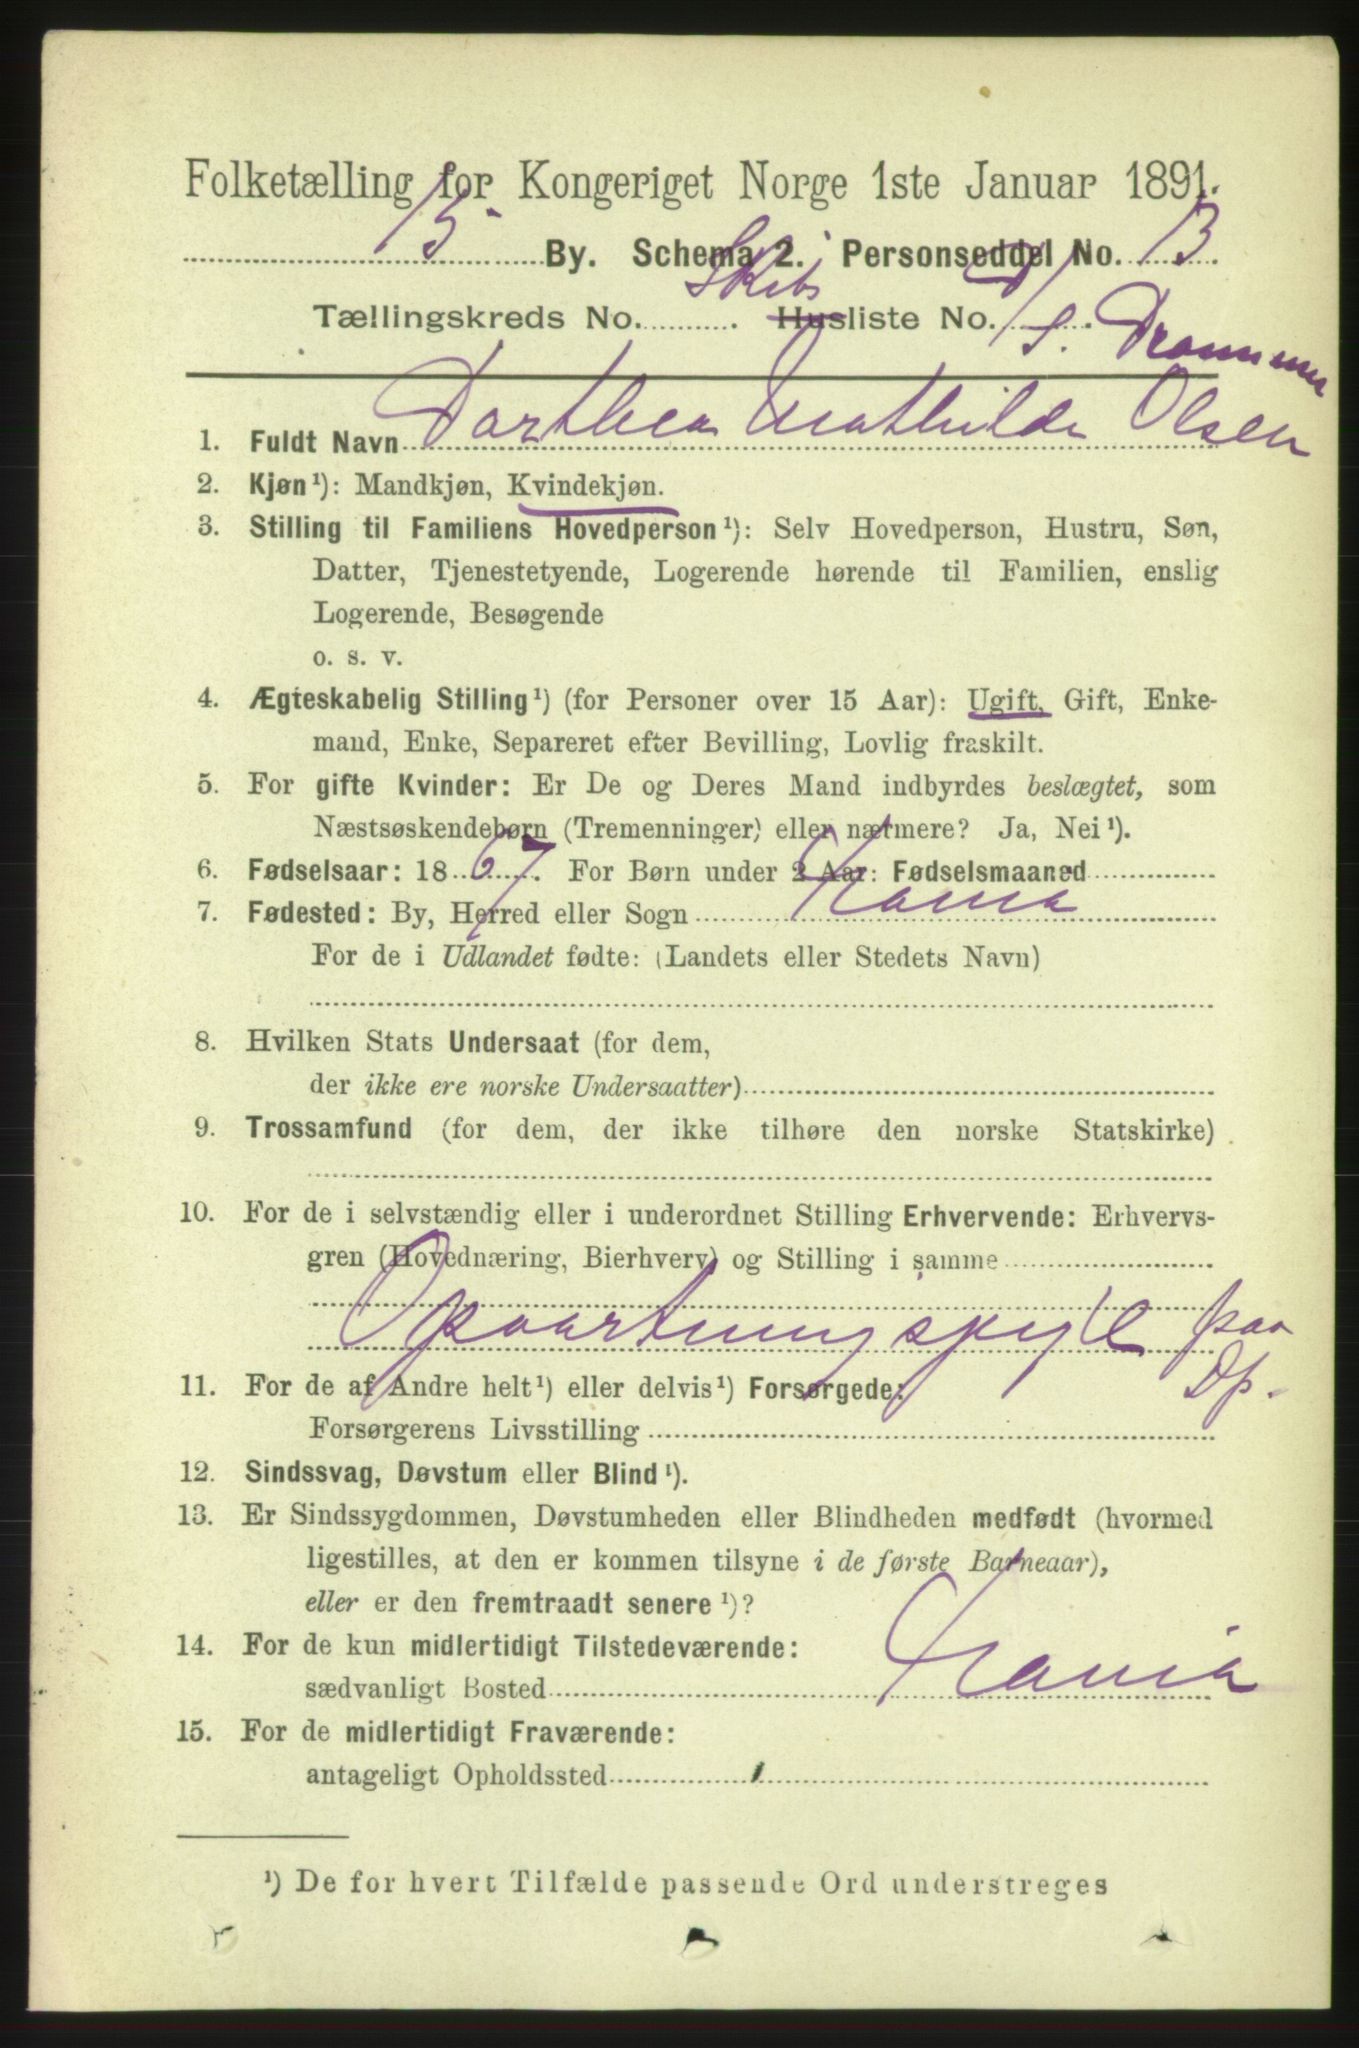 Folketælling for Kongeriget Norge 1ste Januar 1891.
15 By. Schema 2. Personseddel No. 13
Tællingskreds No. ........... Skibs Husliste No.
S. Drammen
1. Fuldt Navn Dorthea Mathilde Olsen
2. Kjøn¹): Mandkjøn, Kvindekjøn.
3. Stilling til Familiens Hovedperson¹): Selv Hovedperson, Hustru, Søn,
Datter, Tjenestetyende, Logerende hørende til Familien, enslig
Logerende, Besøgende
o. s. v.
4. Ægteskabelig Stilling¹) (for Personer over 15 Aar): Ugift, Gift, Enke-
mand, Enke, Separeret efter Bevilling, Lovlig fraskilt.
5. For gifte Kvinder: Er De og Deres Mand indbyrdes beslægtet, som
Næstsøskendebørn (Tremenninger) eller nærmere? Ja, Nei¹).
6. Fødselsaar: 1867. For Børn under 2 Aar: Fødselsmaaned
7. Fødested: By, Herred eller Sogn Xania
For de i Udlandet fødte: (Landets eller Stedets Navn)
8. Hvilken Stats Undersaat (for dem,
der ikke ere norske Undersaatter)
9. Trossamfund (for dem, der ikke tilhøre den norske Statskirke)
10. For de i selvstændig eller i underordnet Stilling Erhvervende: Erhvervs-
gren (Hovednæring, Bierhverv) og Stilling i samme
Opvartningspige paa
Dp.
11. For de af Andre helt¹) eller delvis¹) Forsørgede:
Forsørgerens Livsstilling
12. Sindssvag, Døvstum eller Blind¹).
13. Er Sindssygdommen, Døvstumheden eller Blindheden medfødt (hvormed
ligestilles, at den er kommen tilsyne i de første Barneaar),
eller er den fremtraadt senere¹)?
14. For de kun midlertidigt Tilstedeværende:
sædvanligt Bosted Xania
15. For de midlertidigt Fraværende:
antageligt Opholdssted
¹) De for hvert Tilfælde passende Ord understreges